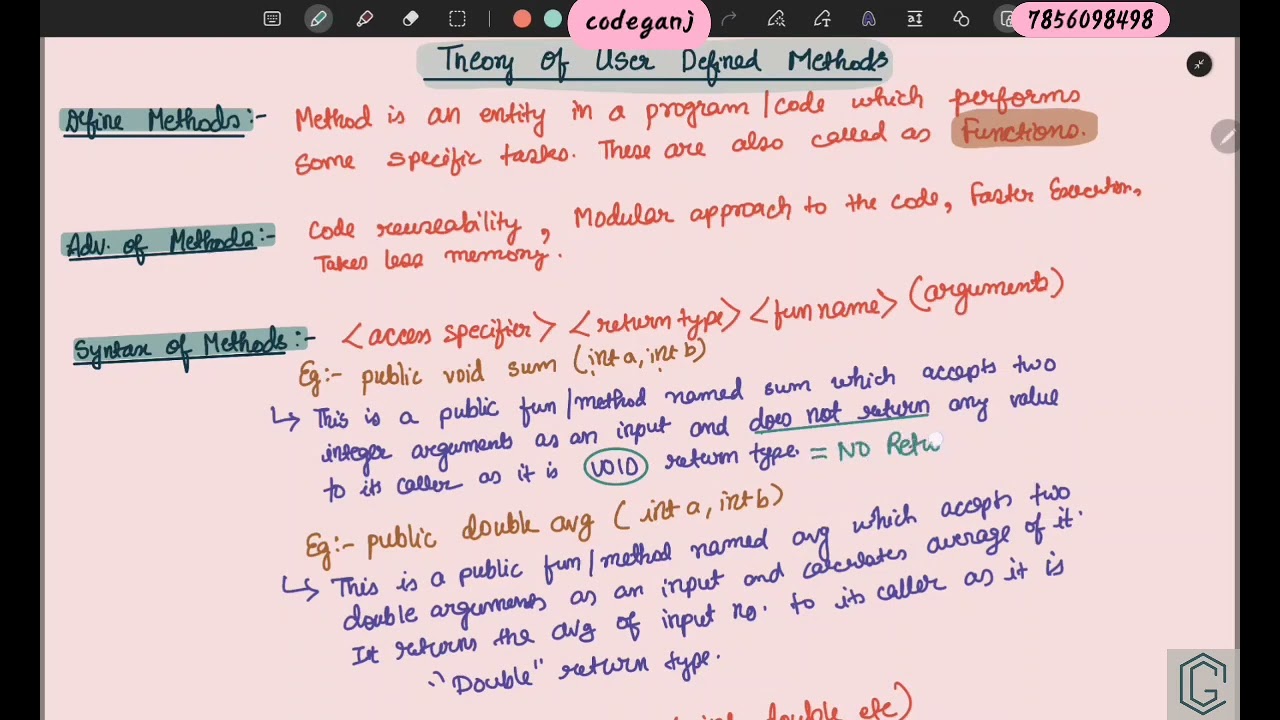 codeganj
7856098498
Theory Of User Defined Methods
Define Methods:- Method is an entity in a program/code which performs
Some specific tasks. These are also called as Functions.
Adv. of Methods:- Code reuseability, Modular approach to the code, Faster Execution,
Takes less memory.
Syntax of Methods:- <access specifier> <return type> <fun name> (arguments)
Eg:- public void sum (int a, int b)
↳ This is a public fun/method named sum which accepts two
integer arguments as an input and does not return any value
to its caller as it is VOID return type. = NO Retu
Eg:- public double avg (int a, int b)
↳ This is a public fun/method named avg which accepts two
double arguments as an input and calculates average of it.
It returns the avg of input no. to its caller as it is
"Double" return type.
double etc)